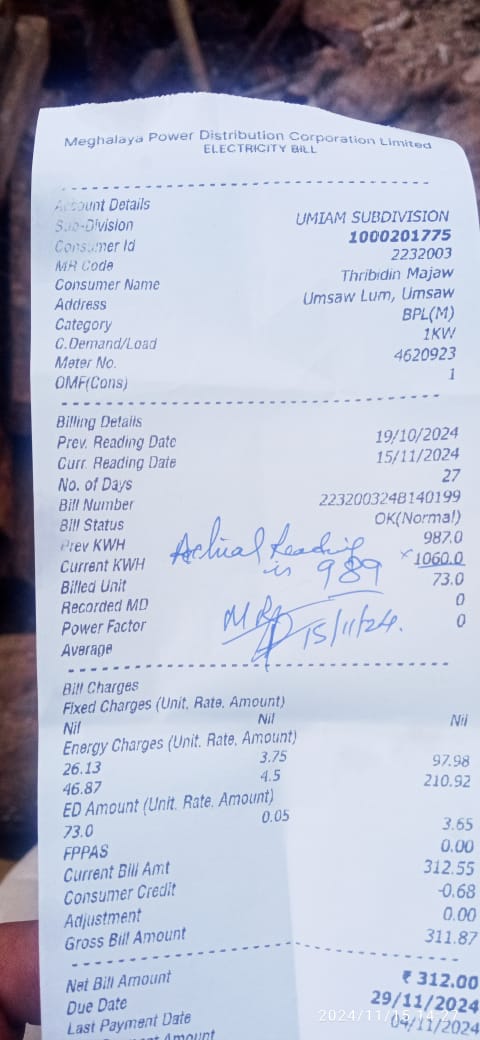 Meghalaya Power Distribution Corporation Limited
ELECTRICITY BILL
Account Details
Sub-Division UMIAM SUBDIVISION
Consumer Id 1000201775
MR Code 2232003
Consumer Name Thribidin Majaw
Address Umsaw Lum, Umsaw
Category BPL(M)
C.Demand/Load 1KW
Meter No. 4620923
OMF(Cons) 1
Billing Details
Prev. Reading Date 19/10/2024
Curr. Reading Date 15/11/2024
No. of Days 27
Bill Number 223200324B140199
Bill Status OK(Normal)
Prev KWH 987.0
Current KWH × 1060.0
Actual Reading
is 989
Billed Unit 73.0
Recorded MD 0
Power Factor 0
Average
15/11/24.
Bill Charges
Fixed Charges (Unit, Rate, Amount)
Nil Nil Nil
Energy Charges (Unit, Rate, Amount)
26.13 3.75 97.98
46.87 4.5 210.92
ED Amount (Unit, Rate, Amount)
73.0 0.05 3.65
FPPAS 0.00
Current Bill Amt 312.55
Consumer Credit -0.68
Adjustment 0.00
Gross Bill Amount 311.87
Net Bill Amount ₹ 312.00
Due Date 29/11/2024
Last Payment Date 04/11/2024
Amount
2024/11/15 14:27